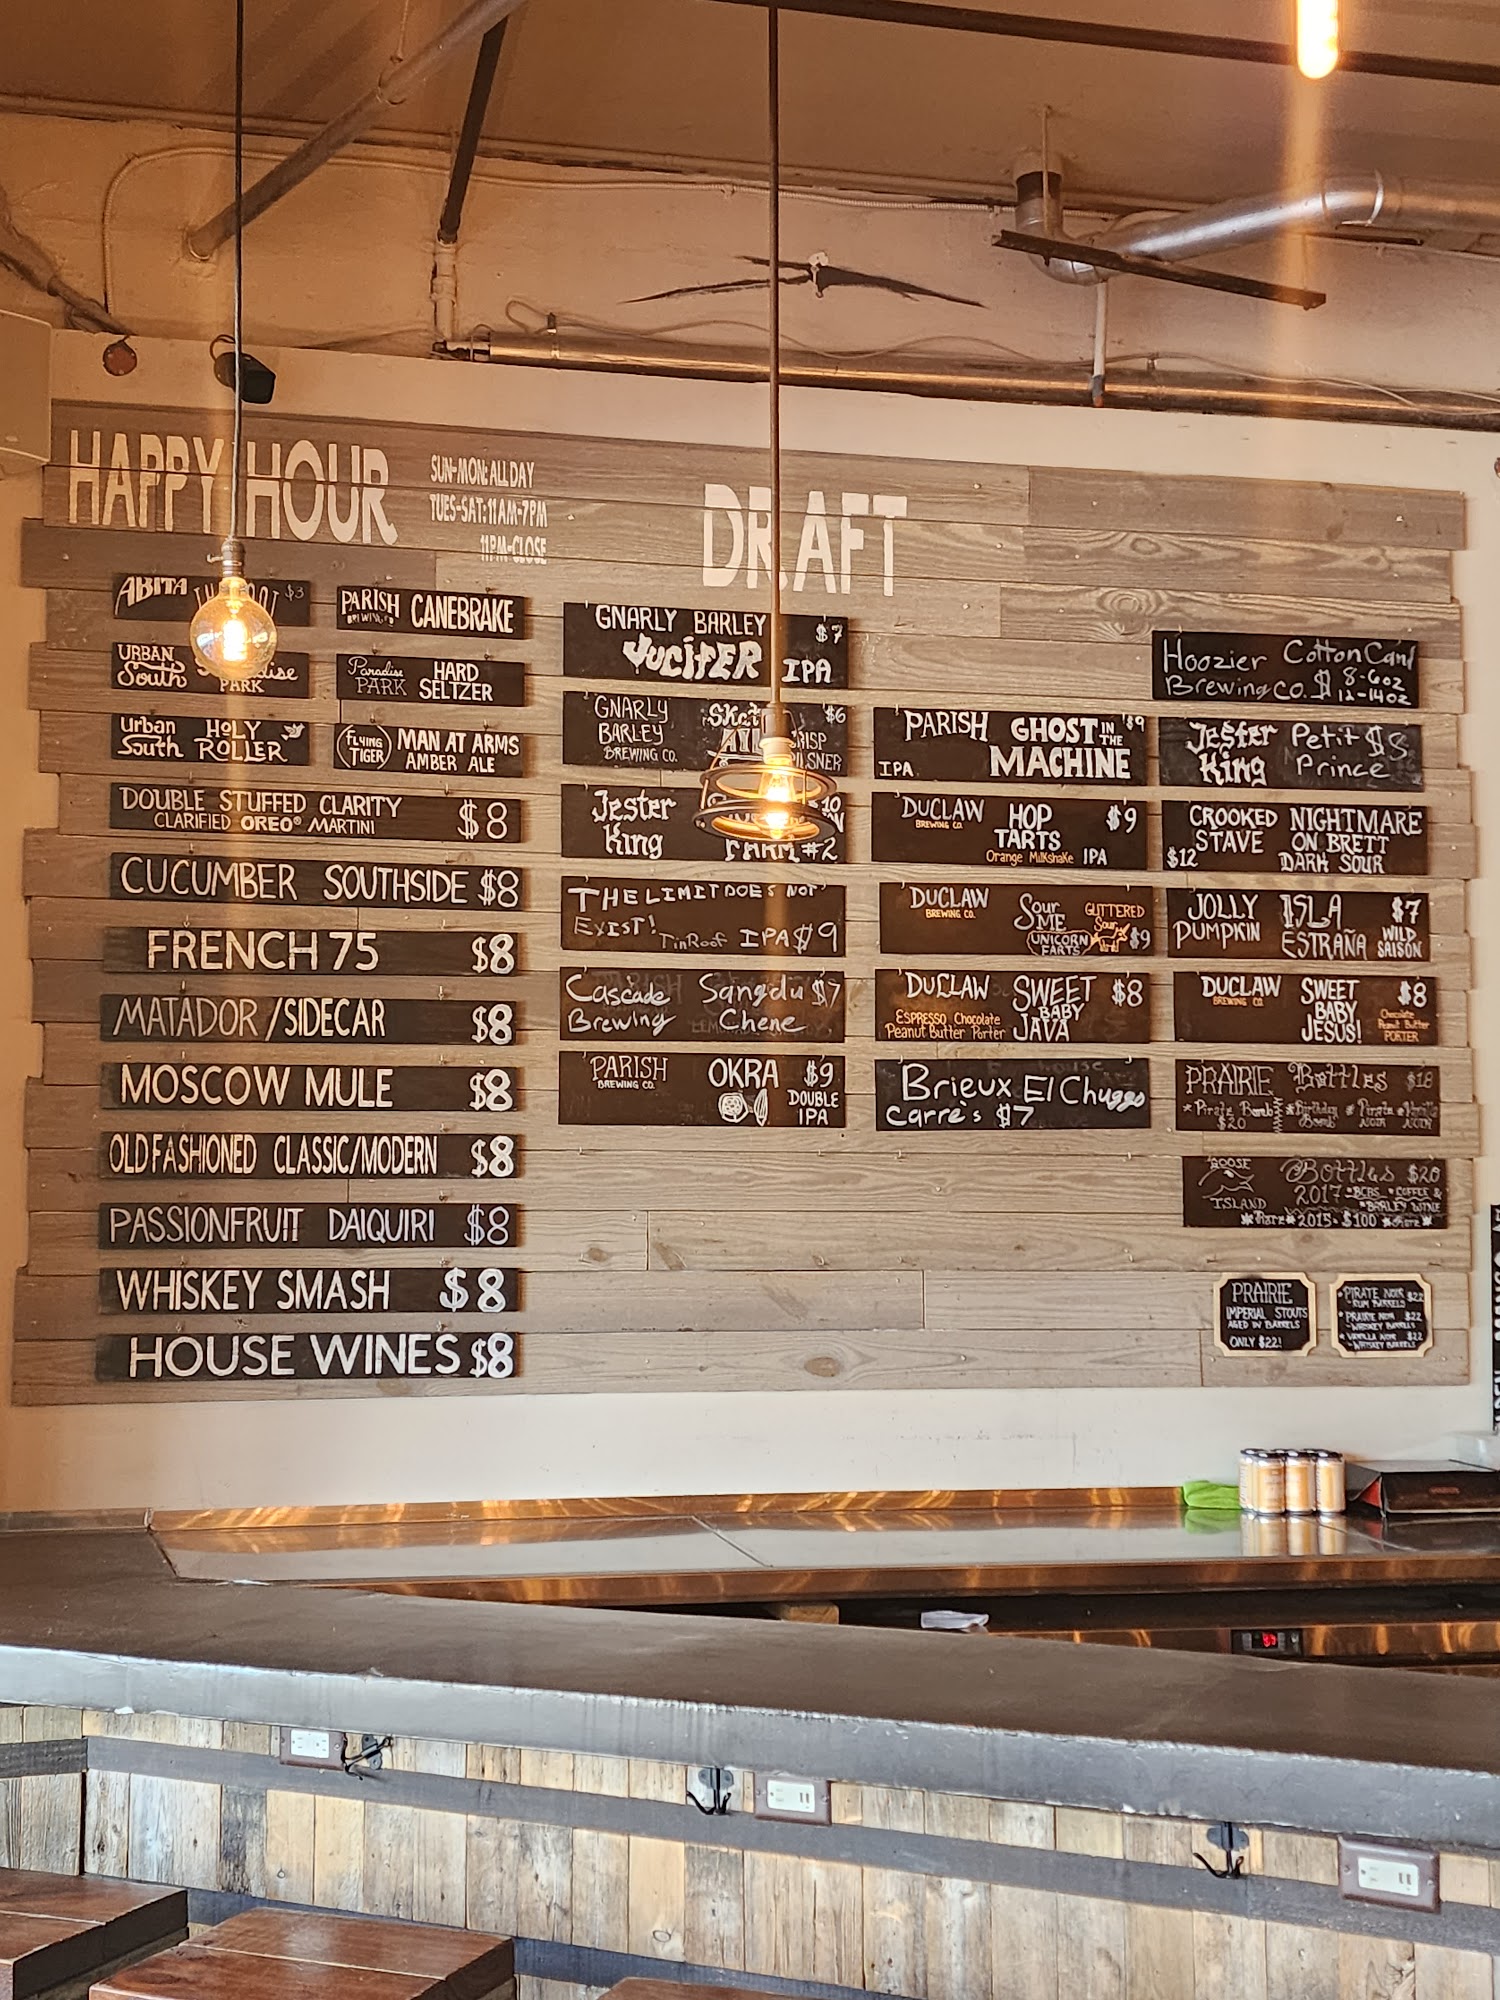 HAPPY HOUR
SUN-MON: ALL DAY
TUES-SAT: 11AM-7PM
11PM-CLOSE
DRAFT
ABITA $3
PARISH CANEBRAKE
BREWING CO
URBAN
South
PARK
Paradise HARD
PARK SELTZER
Urban HOLY
South ROLLER
FLYING MAN AT ARMS
TIGER AMBER ALE
DOUBLE STUFFED CLARITY $8
CLARIFIED OREO® MARTINI
CUCUMBER SOUTHSIDE $8
FRENCH 75 $8
MATADOR/SIDECAR $8
MOSCOW MULE $8
OLD FASHIONED CLASSIC/MODERN $8
PASSIONFRUIT DAIQUIRI $8
WHISKEY SMASH $8
HOUSE WINES $8
GNARLY BARLEY $7
JUCIFER IPA
GNARLY $6
BARLEY
BREWING CO.
Jester
King
FARM #2
THE LIMIT DOES NOT
EXIST! TinRoof IPA $9
Cascade Sangdu $7
Brewing Chene
PARISH OKRA $9
BREWING CO. DOUBLE
IPA
PARISH GHOST IN THE $9
IPA MACHINE
DUCLAW HOP $9
BREWING CO. TARTS
Orange Milkshake IPA
DUCLAW Sour GLITTERED
BREWING CO. ME Sour
UNICORN $9
FARTS
DUCLAW SWEET $8
BREWING CO. BABY
ESPRESSO Chocolate JAVA
Peanut Butter Porter
Brieux El Chuggo
Carré's $7
Hoozier Cotton Cand
Brewing CO. $ 8-6oz
12-14oz
Jester Petit $8
King Prince
CROOKED NIGHTMARE
STAVE ON BRETT
$12 DARK SOUR
JOLLY ISLA $7
PUMPKIN ESTRAÑA WILD
SAISON
DUCLAW SWEET $8
BREWING CO. BABY
JESUS!
Chocolate
Peanut Butter
PORTER
PRAIRIE Bottles $18
*Pirate Bomb *Birthday *Pirate *Vanilla
$20 Bomb NOIR NOIR
GOOSE Bottles $20
ISLAND 2017 *BCBS *COFFEE &
*BARLEY WINE
*Rare* 2015 - $100 *Rare*
PRAIRIE
IMPERIAL STOUTS
AGED IN BARRELS
ONLY $22!
*PIRATE NOIR $22
-RUM BARRELS
*PRAIRIE NOIR $22
-WHISKEY BARRELS
*VANILLA NOIR $22
-WHISKEY BARRELS